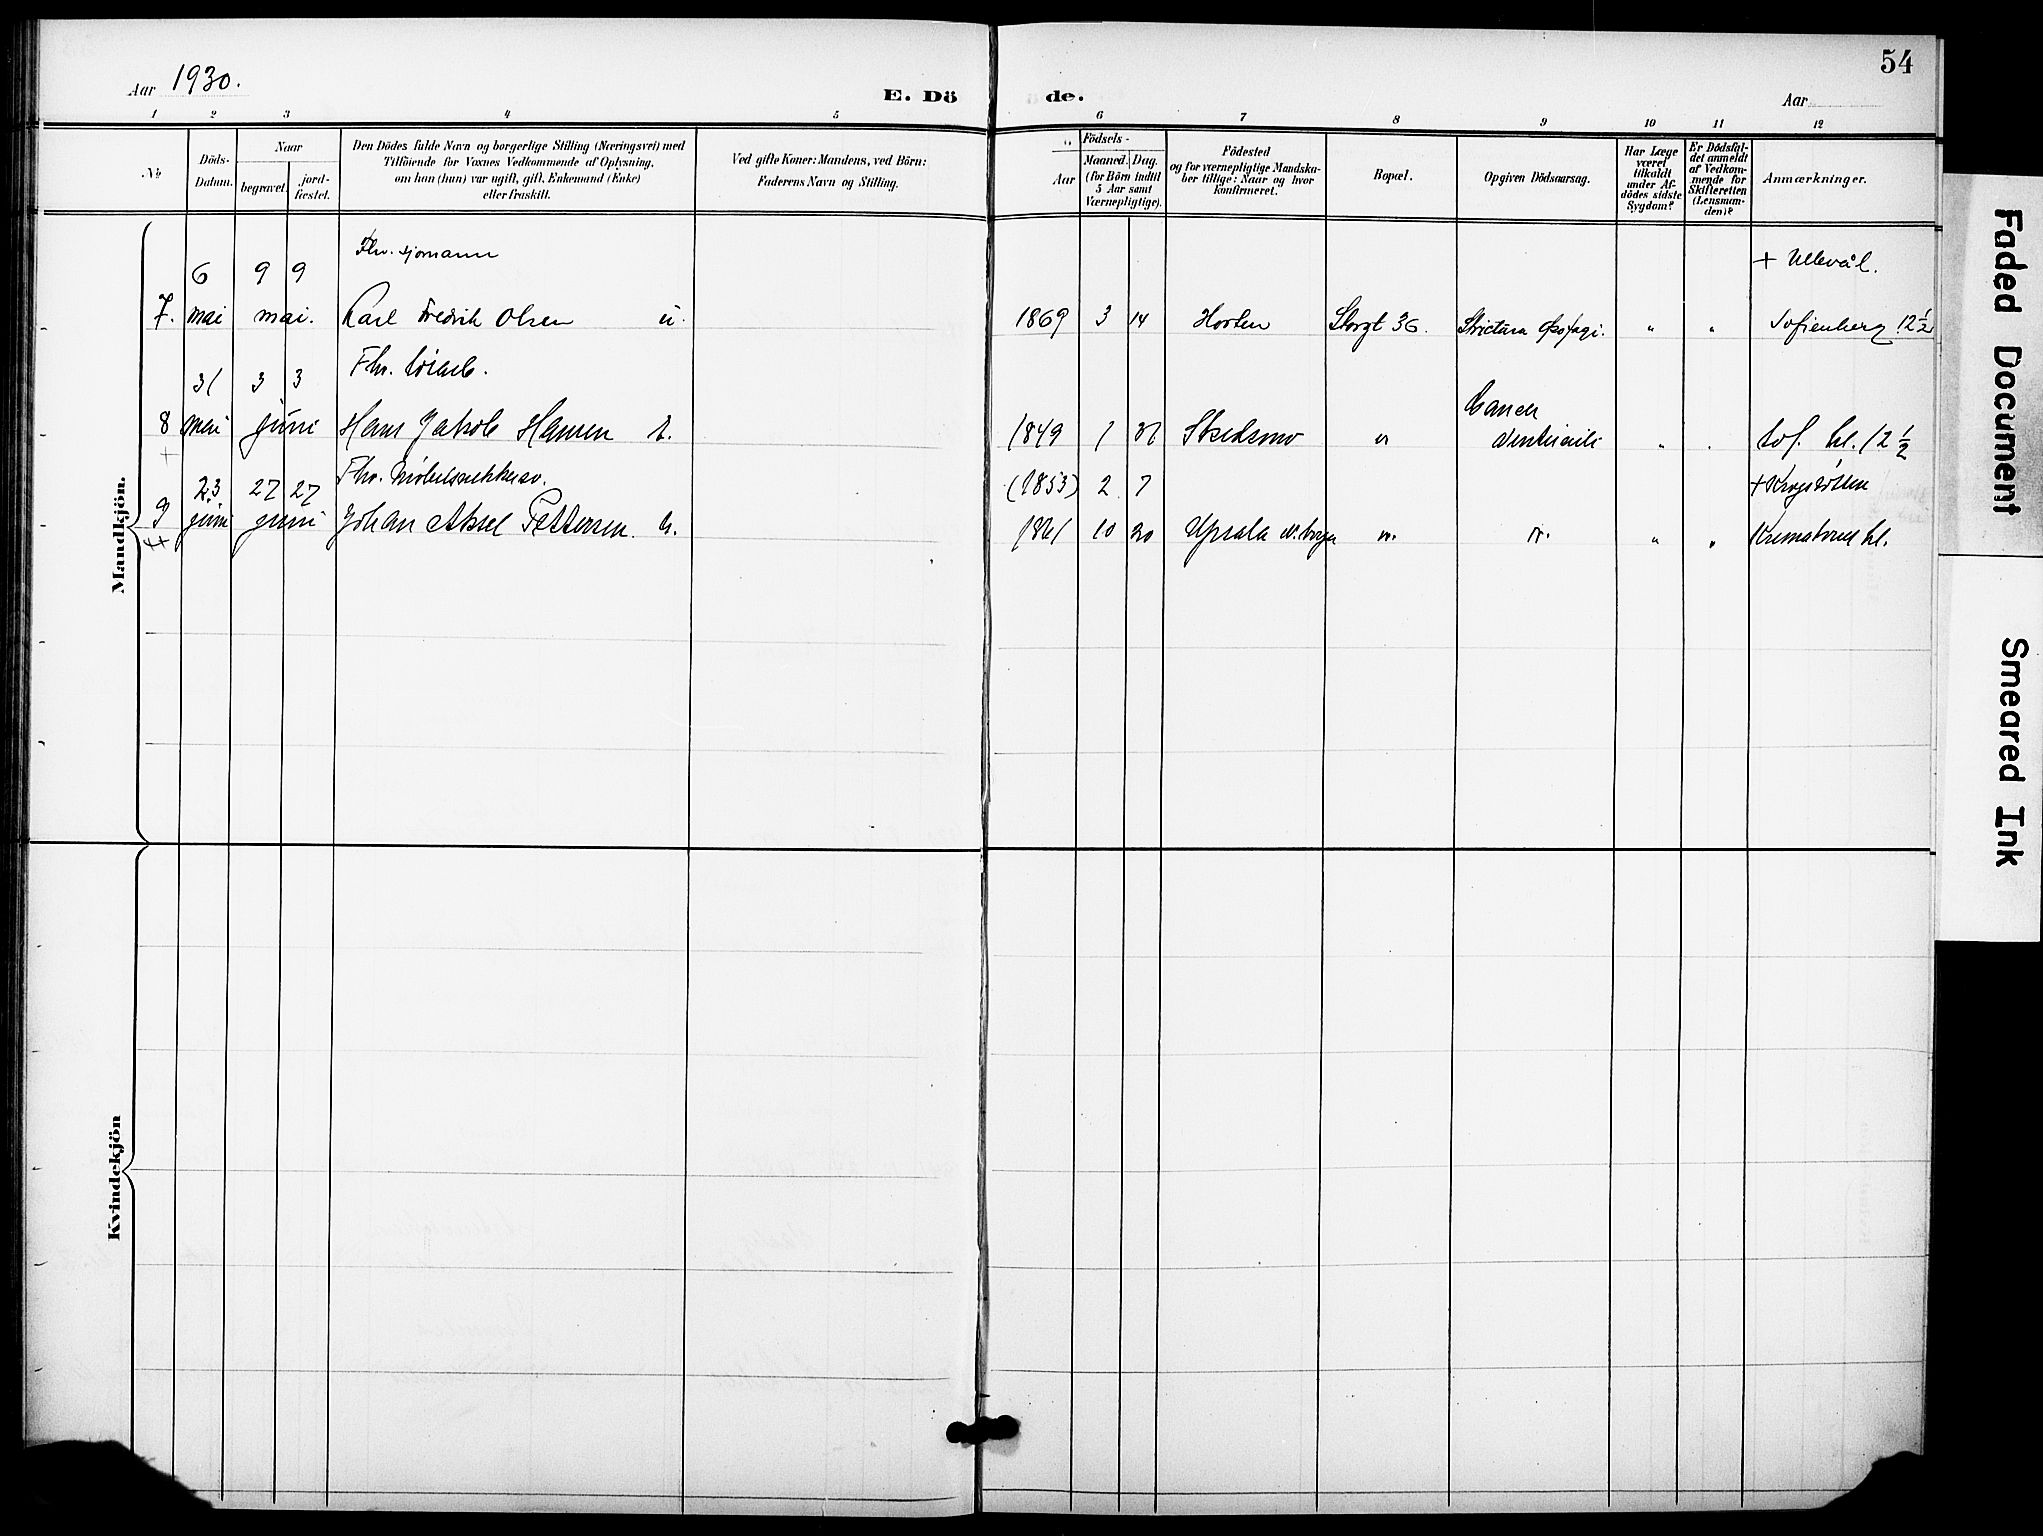 Aar 1930.
E. Dö de.
Aar
54
1 2 3 4 5 6 7 8 9 10 11 12
No
Döds-Datum.
Naar
begravet.
jord-fæstet.
Den Dödes fulde Navn og borgerlige Stilling (Næringsvei) med
Tilföiende for Voxnes Vedkommende af Oplysning,
om han (hun) var ugift, gift, Enkemand (Enke)
eller fraskilt.
Ved gifte Koner: Mandens, ved Börn:
Faderens Navn og Stilling.
Födsels-
Aar
Maaned. Dag.
(for Börn indtil
5 Aar samt
Værnepligtige).
Födested
og for værnepligtige Mandska-
ber tillige: Naar og hvor
konfirmeret.
Bopæl.
Opgiven Dödsaarsag.
Har Læge
været
tilkaldt
under Af-
dödes sidste
Sygdom?
Er Dödsfal-
det anmeldt
af Vedkom-
mende for
Skifteretten
(Lensman-
den)?
Anmærkninger.
Mandkjön.
Fhv. sjömann
6 9 9 + Ullevål.
7. mai mai. Karl Fredrik Olsen u. 1869 3 14 Horten Storgt 36. Strictura " " Sofienberg 12 1/2
Fhv.
31 3 3
8 mai juni Hans Jakob Hansen 1849 1 31 Skedsmo " Cancer ventriculi " " Sof. kl. 12 1/2
+
Fhv.
23 27 27 (1853) 2 7
9 juni juni Johan Aksel Pettersen. 1861 10 20 Upsala " " " " Krematoriet kl.
Kvindekjön
Faded Document
Smeared Ink